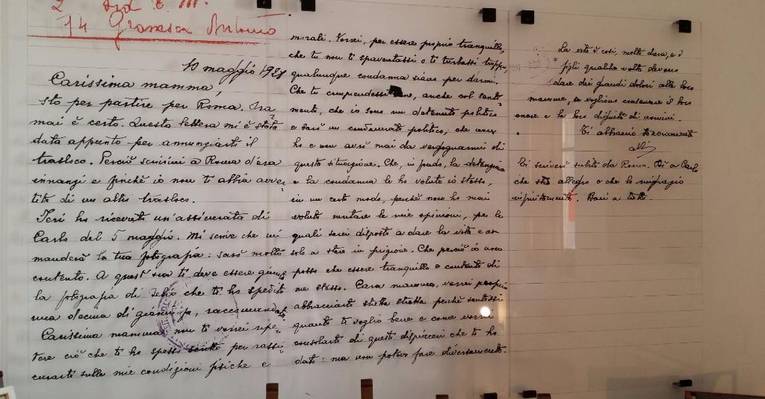 2
14 Gramsci Antonio
10 maggio 1928
Carissima mamma,
sto per partire per Roma. Ora-
mai è certo. Questa lettera mi è stata
data appunto per annunziarti il
trasloco. Perciò scrivimi a Roma d'ora
innanzi e finché io non ti abbia avver-
tita di un altro trasloco.
Ieri ho ricevuto un'assicurata di
Carlo del 5 maggio. Mi scrive che mi
manderà la tua fotografia: sarò molto
contento. A quest'ora ti deve essere giunta
la fotografia di Delio che ti ho spedito
una decina di giorni fa, raccomandata.
Carissima mamma, non ti vorrei ripe-
tere ciò che ti ho spesso scritto per rassi-
curarti sulle mie condizioni fisiche e
morali. Vorrei, per essere proprio tranquillo,
che tu non ti spaventassi o ti turbassi troppo
qualunque condanna siano per darmi.
Che tu comprendessi bene, anche col senti-
mento, che io sono un detenuto politico
e sarò un condannato politico, che non
ho e non avrò mai da vergognarmi di
questa situazione. Che, in fondo, la detenzione
e la condanna le ho volute io stesso,
in un certo modo, perché non ho mai
voluto mutare le mie opinioni, per le
quali sarei disposto a dare la vita e non
solo a stare in prigione. Che perciò io non
posso che essere tranquillo e contento di
me stesso. Cara mamma, vorrei proprio
abbracciarti stretta stretta perché sentissi
quanto ti voglio bene e come vorrei
consolarti di questo dispiacere che ti ho
dato: ma non potevo fare diversamente.
La vita è così, molto dura, e i
figli qualche volta devono
dare dei grandi dolori alle loro
mamme, se vogliono conservare il loro
onore e la loro dignità di uomini.
Ti abbraccio teneramente
Nino
Ti scriverò subito da Roma. Di' a Carlo
che stia allegro e che lo ringrazio
infinitamente. Baci a tutti.